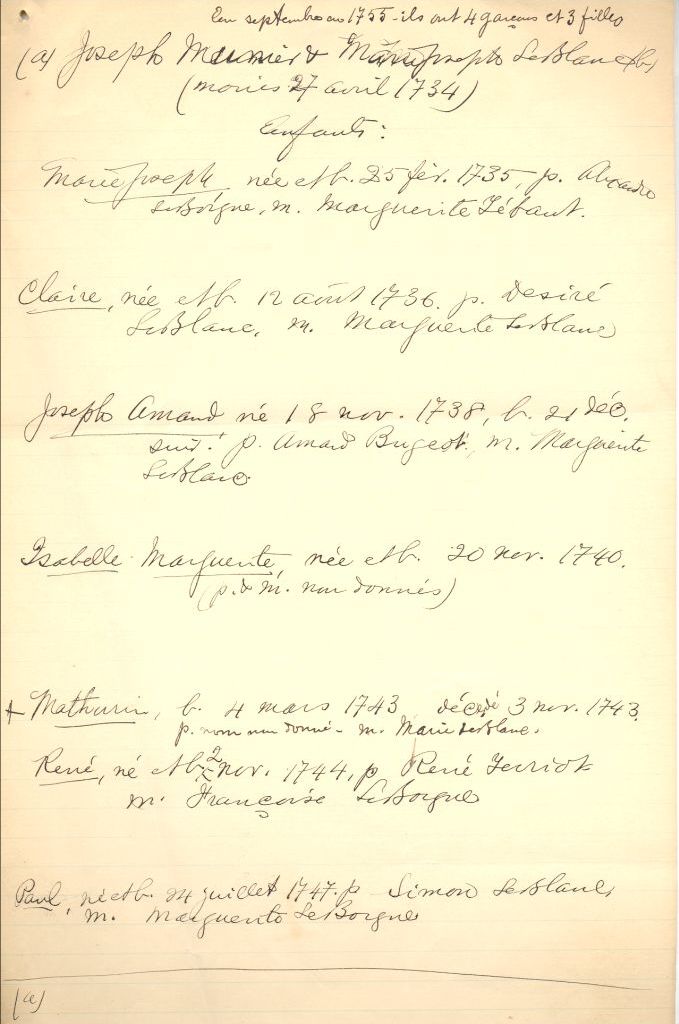 En septembre en 1755 - ils ont 4 garçons et 3 filles
(a) Joseph Meunier & Marie Josepte LeBlanc (b)
(mariés 27 avril 1734)
Enfants:
Marie Joseph née et b. 25 fév. 1735, p. Alexandre
LeBorgne, m. Marguerite Tébaut.
Claire, née et b. 12 août 1736. p. Desiré
LeBlanc, m. Marguerite LeBlanc
Joseph Amand né 18 nov. 1738, b. 21 déc.
suiv. p. Amand Bugeot, m. Marguerite
LeBlanc
Isabelle Marguerite, née et b. 20 nov. 1740.
(p. & m. non donnés)
+ Mathurin, b. 4 mars 1743 décédé 3 nov. 1743.
p. nom non donné - m. Marie LeBlanc.
René, né et b. 2 nov. 1744, p René Terriot
m. Françoise LeBorgne
Paul, né et b. 24 juillet 1747. p Simon LeBlanc,
m. Marguerite LeBorgne
(a)